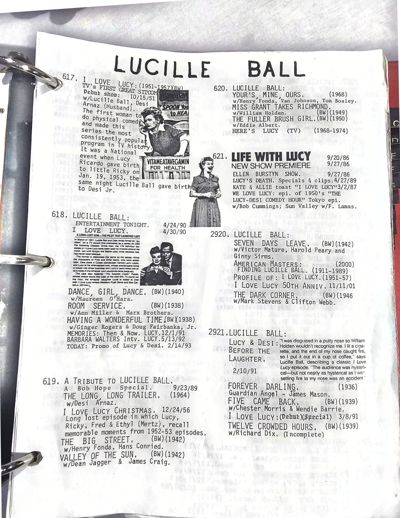 LUCILLE BALL
617. I LOVE LUCY:(1951-1957)(BW)
TV's FIRST GREAT SITCOM
Debut show: 10/15/51
w/Lucille Ball, Desi
Arnaz (Husband).
The first woman to
do physical comedy
and made this
series the most
consistently popular
program in TV history
It was a National
event when Lucy
Ricardo gave birth
to little Ricky on
Jan. 19, 1953, the
same night Lucille Ball gave birth
to Desi Jr.
VITAMEATAVEGAMIN
FOR HEALTH
618. LUCILLE BALL:
ENTERTAINMENT TONIGHT. 4/24/90
I LOVE LUCY. 4/30/90
DANCE, GIRL, DANCE. (BW)(1940)
w/Maureen O'Hara.
ROOM SERVICE. (BW)(1938)
w/Ann Miller & Marx Brothers.
HAVING A WONDERFUL TIME(BW)(1938)
w/Ginger Rogers & Doug Fairbanks, Jr.
MEMORIES: Then & Now. LUCY.12/1/91
BARBARA WALTERS Intv. LUCY.5/13/92
TODAY: Promo of Lucy & Desi. 2/14/93
619. A TRIBUTE TO LUCILLE BALL.
A Bob Hope Special. 9/23/89
THE LONG, LONG TRAILER. (1964)
w/Desi Arnaz.
I LOVE LUCY CHRISTMAS. 12/24/56
Long lost episode in which Lucy,
Ricky, Fred & Ethyl (Mertz), recall
memorable moments from 1952-53 episodes.
THE BIG STREET. (BW)(1942)
w/Henry Fonda, Hans Conried.
VALLEY OF THE SUN. (BW)(1942)
w/Dean Jagger & James Craig.
620. LUCILLE BALL:
YOUR'S, MINE, OURS. (1968)
w/Henry Fonda, Van Johnson, Tom Bosley.
MISS GRANT TAKES RICHMOND.
w/William Holden. (BW)(1949)
THE FULLER BRUSH GIRL.(BW)(1950)
w/Eddie Albert.
HERE'S LUCY (TV) (1968-1974)
621. LIFE WITH LUCY 9/20/86
NEW SHOW PREMIERE 9/27/86
ELLEN BURSTYN SHOW. 9/27/86
LUCY'S DEATH. Specials & clips.4/27/89
KATE & ALLIE toast "I LOVE LUCY"3/2/87
WE LOVE LUCY: epi. of 1950's "THE
LUCY-DESI COMEDY HOUR" Tokyo epi.
w/Bob Cummings; Sun Valley w/F. Lamas.
2920. LUCILLE BALL:
SEVEN DAYS LEAVE. (BW)(1942)
w/Victor Mature, Harold Peary and
Ginny Sims.
AMERICAN MASTERS: (2000)
FINDING LUCILLE BALL. (1911-1989)
PROFILE OF: I LOVE LUCY.(1951-57)
I LOVE LUCY 50TH ANNIV. 11/11/01
THE DARK CORNER. (BW)(1946
w/Mark Stevens & Clifton Webb.
2921.LUCILLE BALL:
LUCY & DESI:
BEFORE THE
LAUGHTER.
2/10/91
"I was disguised in a putty nose so William
Holden wouldn't recognize me. I lit a ciga-
rette, and the end of my nose caught fire,
so I put it out in a cup of coffee," says
Lucille Ball, describing a classic I Love
Lucy episode. "The audience was hyster-
ical—but not nearly as hysterical as I was
setting fire to my nose was an accident!
FOREVER DARLING. (1936)
Guardian Angel - James Mason.
FIVE CAME BACK. (BW)(1939)
w/Chester Morris & Wendie Barrie.
I LOVE LUCY:(Debut)(Special) 3/8/91
TWELVE CROWDED HOURS. (BW)(1939)
w/Richard Dix. (Incomplete)